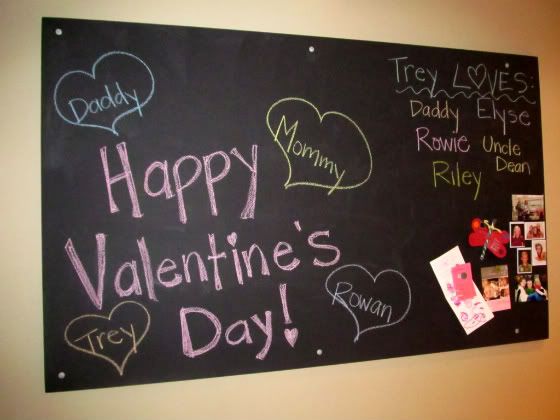 Daddy
Mommy
Happy
Valentine's
Day!
Trey
Rowan
Trey LOVES:
Daddy Elyse
Rowie Uncle Dean
Riley